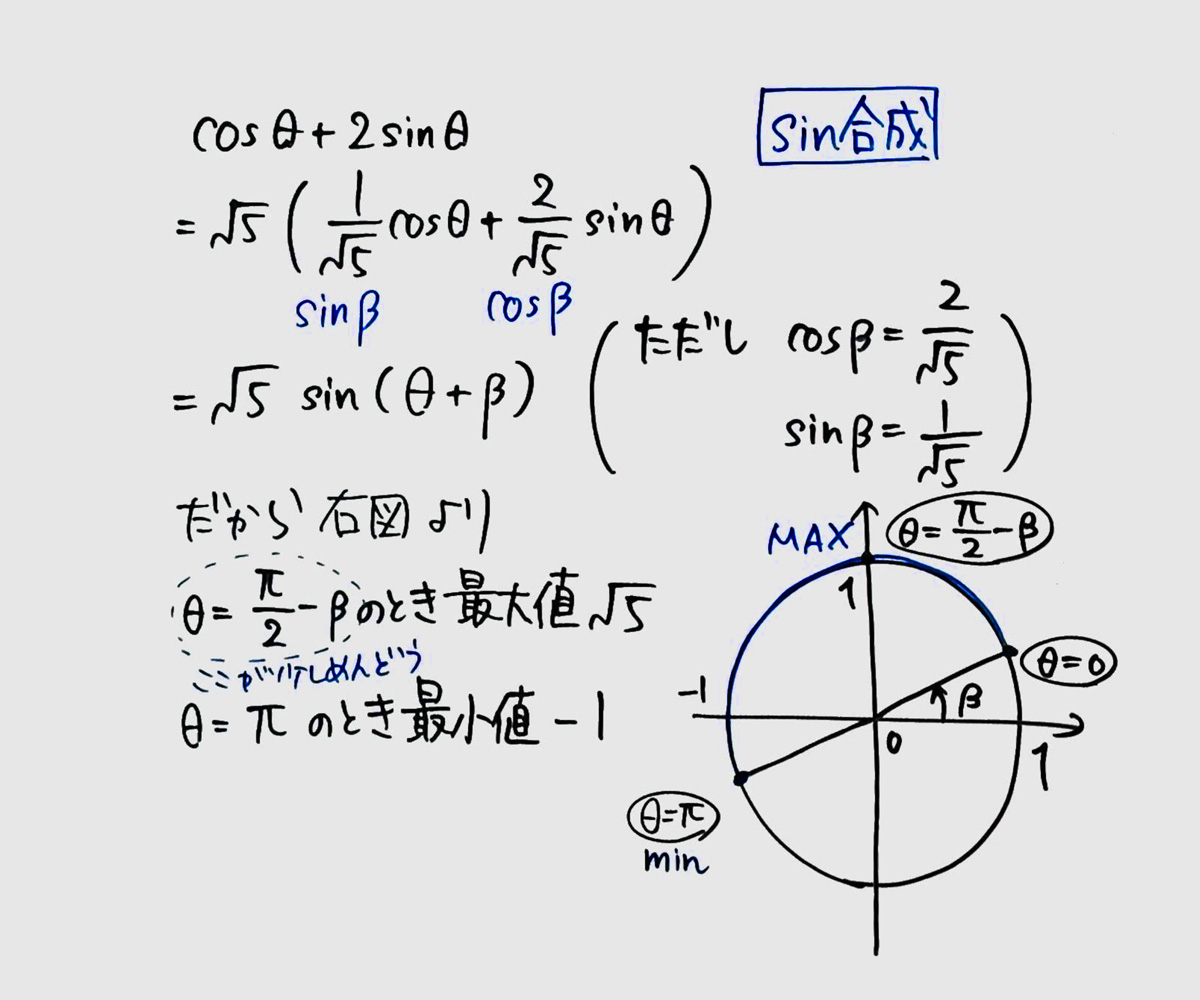 sin合成
cosθ+2sinθ
=√5(1/√5 cosθ+2/√5 sinθ)
sinβ cosβ
=√5 sin(θ+β)
(ただし cosβ=2/√5
sinβ=1/√5)
だから右図より
θ=π/2-βのとき最大値√5
ここが少しめんどう
θ=πのとき最小値-1
MAX θ=π/2-β
1
θ=0
β
-1
0
1
θ=π
min